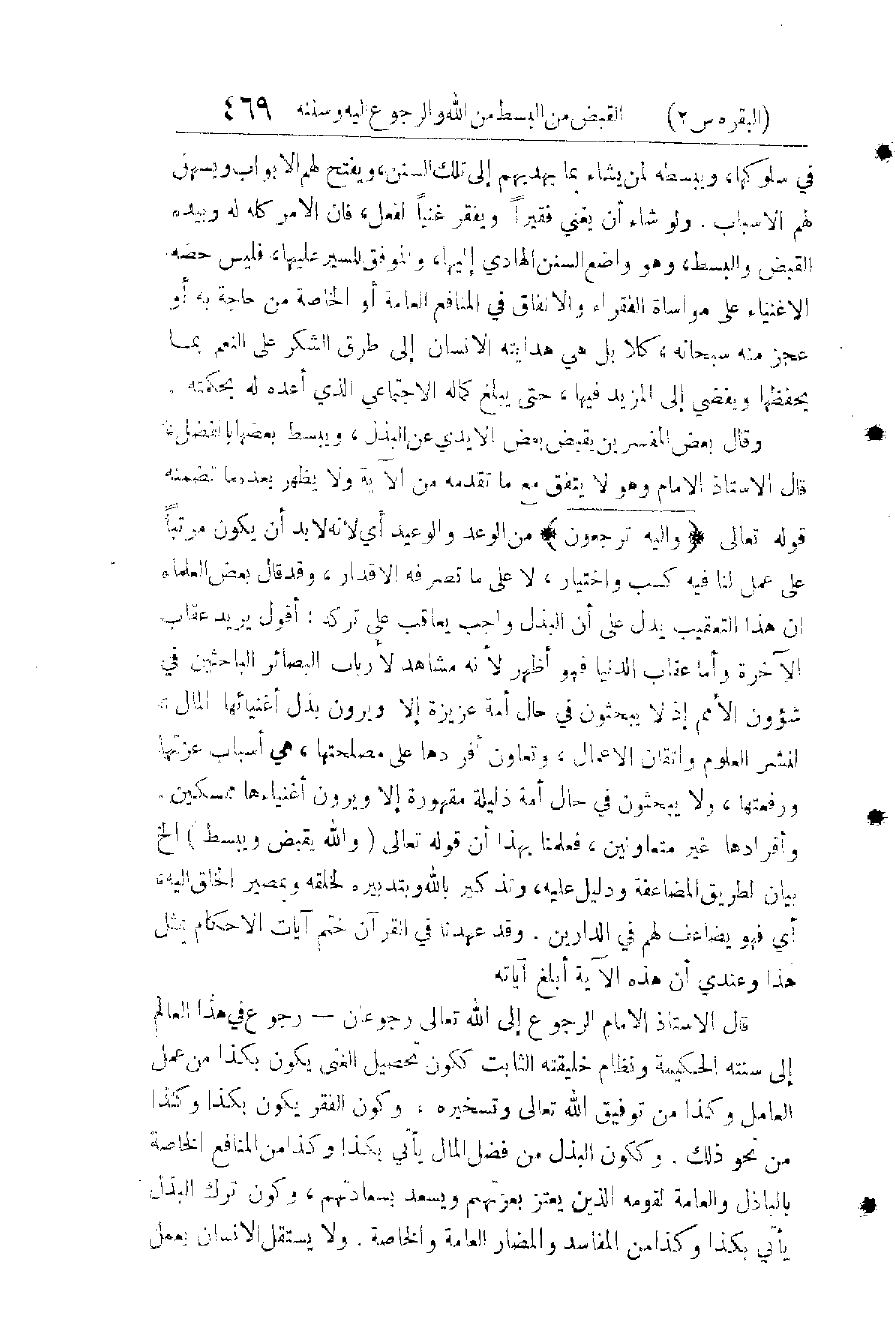 (البقرة س ٢) القبض من البسط من الله والرجوع اليه وسننه ٤٦٩
في سلوكها، ويبسطه لمن يشاء بما يهديهم إلى تلك السنن، ويفتح لهم الابواب ويسهل
لهم الاسباب . ولو شاء أن يغني فقيراً ويفقر غنياً لفعل، فان الامر كله له وبيده
القبض والبسط، وهو واضع السنن الهادي إليها، والموفق للسير عليها، فليس حضه
الاغنياء على مواساة الفقراء والانفاق في المنافع العامة أو الخاصة من حاجة به أو
عجز منه سبحانه، كلا بل هي هدايته الانسان إلى طرق الشكر على النعم بما
يحفظها ويفضي إلى المزيد فيها، حتى يبلغ كماله الاجتماعي الذي أعده له بحكمته .
وقال بعض المفسرين يقبض بعض الايدي عن البذل، ويبسط بعضها بالفضل،
قال الاستاذ الامام وهو لا يتفق مع ما تقدمه من الآية ولا يظهر بعده ما تضمنه
قوله تعالى ﴿ واليه ترجعون ﴾ من الوعد والوعيد أي لانه لابد أن يكون مرتباً
على عمل لنا فيه كسب واختيار ، لا على ما تصرفه الاقدار ، وقد قال بعض العلماء
ان هذا التعقيب يدل على أن البذل واجب يعاقب على تركه : أقول يريد عقاب
الآخرة وأما عقاب الدنيا فهو أظهر لأنه مشاهد لأرباب البصائر الباحثين في
شؤون الأمم إذ لا يبحثون في حال أمة عزيزة إلا ويرون بذل أغنيائها المال
لنشر العلوم واتقان الاعمال ، وتعاون أفرادها على مصلحتها ، هي أسباب عزتها
ورفعتها ، ولا يبحثون في حال أمة ذليلة مقهورة إلا ويرون أغنياءها ممسكين .
وأفرادها غير متعاونين ، فعلمنا بهذا أن قوله تعالى ( والله يقبض ويبسط ) الخ
بيان لطريق المضاعفة ودليل عليه، وتذكير بالله وبتدبيره لخلقه وبمصير الخلق اليه،
أي فهو يضاعف لهم في الدارين . وقد عهدنا في القرآن ختم آيات الاحكام بمثل
هذا وعندي أن هذه الآية أبلغ آياته
قال الاستاذ الامام الرجوع إلى الله تعالى رجوعان — رجوع في هذا العالم
إلى سنته الحكيمة ونظام خليقته الثابت ككون تحصيل الغنى يكون بكذا من عمل
العامل وكذا من توفيق الله تعالى وتسخيره ، وكون الفقر يكون بكذا وكذا
من نحو ذلك . وككون البذل من فضل المال يأتي بكذا وكذا من المنافع الخاصة
بالباذل والعامة لقومه الذين يعتز بعزتهم ويسعد بسعادتهم ، وكون ترك البذل
يأتي بكذا وكذا من المفاسد والمضار العامة والخاصة . ولا يستقل الانسان بعمل